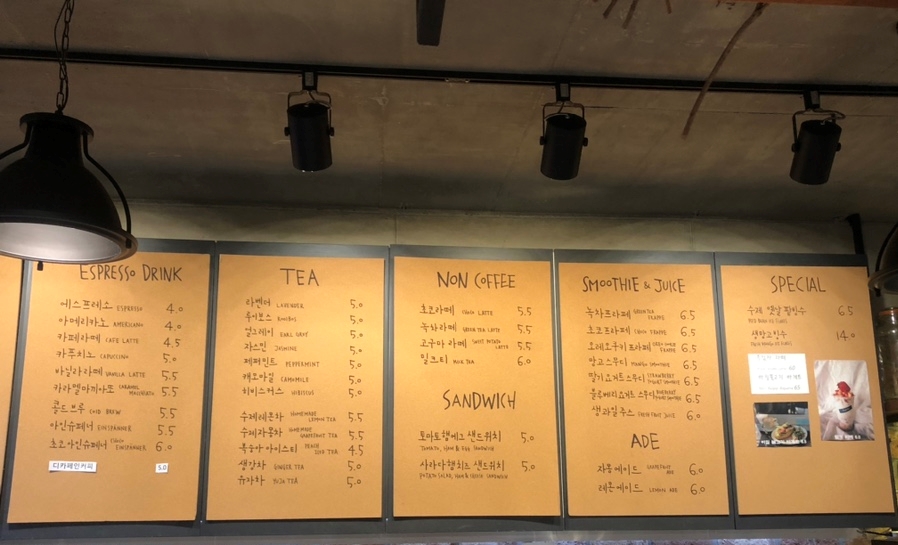 ESPRESSO DRINK
에스프레소 ESPRESSO 4.0
아메리카노 AMERICANO 4.0
카페라떼 CAFE LATTE 4.5
카푸치노 CAPPUCCINO 5.0
바닐라라떼 VANILLA LATTE 5.5
카라멜마끼아또 CARAMEL MACCHIATO 5.5
콜드브루 COLD BREW 5.5
아인슈페너 EINSPANNER 5.5
초코아인슈페너 CHOCO EINSPANNER 6.0
디카페인커피 5.0
TEA
라벤더 LAVENDER 5.0
루이보스 ROOIBOS 5.0
얼그레이 EARL GREY 5.0
자스민 JASMINE 5.0
페퍼민트 PEPPERMINT 5.0
캐모마일 CAMOMILE 5.0
히비스커스 HIBISCUS 5.0
수제레몬차 HOMEMADE LEMON TEA 5.5
수제자몽차 HOMEMADE GRAPEFRUIT TEA 5.5
복숭아 아이스티 PEACH ICED TEA 4.5
생강차 GINGER TEA 5.0
유자차 YUJA TEA 5.0
NON COFFEE
초코라떼 CHOCO LATTE 5.5
녹차라떼 GREEN TEA LATTE 5.5
고구마 라떼 SWEET POTATO LATTE 5.5
밀크티 MILK TEA 6.0
SANDWICH
토마토햄에그 샌드위치 5.0
TOMATO, HAM & EGG SANDWICH
사라다햄치즈 샌드위치 5.0
POTATO SALAD, HAM & CHEESE SANDWICH
SMOOTHIE & JUICE
녹차프라페 GREEN TEA FRAPPE 6.5
초코프라페 CHOCO FRAPPE 6.5
오레오쿠키프라페 OREO COOKIE FRAPPE 6.5
망고스무디 MANGO SMOOTHIE 6.5
딸기요거트스무디 STRAWBERRY YOGURT SMOOTHIE 6.5
블루베리요거트 스무디 BLUEBERRY YOGURT SMOOTHIE 6.5
생과일주스 FRESH FRUIT JUICE 6.0
ADE
자몽에이드 GRAPEFRUIT ADE 6.0
레몬에이드 LEMON ADE 6.0
SPECIAL
수제 옛날 팥빙수 6.5
RED BEAN ICE FLAKES
생망고빙수 14.0
FRESH MANGO ICE FLAKES